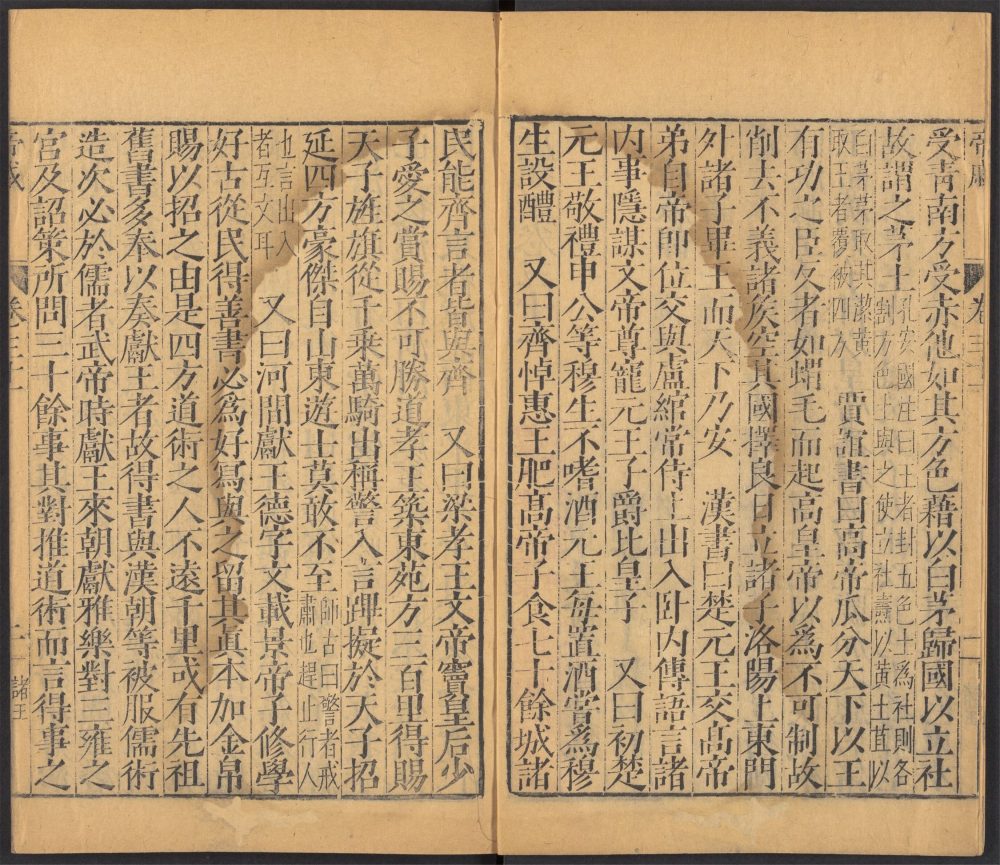 受靑南方受赤他如其方色藉以白茅歸國以立社
故謂之茅土孔安國注曰王者封五色土爲社則各
割方色土與之使立社燾以黃土苴以
白茅茅取其潔黃
取王者覆被四方
賈誼書曰高帝瓜分天下以王
有功之臣久者如蝟毛而起高皇帝以爲不可制故
削去不義諸侯空其國擇良日立諸子洛陽上東門
外諸子畢王而天下乃安 漢書曰楚元王交高帝
弟自帝卽位交與盧綰常侍上出入臥內傳語言諸
內事隱謀文帝尊寵元王子爵比皇子 又曰初楚
元王敬禮申公等穆生不嗜酒元王每置酒嘗爲穆
生設醴 又曰齊悼惠王肥高帝子食七十餘城諸
民能齊言者皆與齊 又曰梁孝王文帝竇皇后少
子愛之賞賜不可勝道孝王築東苑方三百里得賜
天子旌旗從千乘萬騎出稱警入言蹕擬於天子招
延四方豪傑自山東遊士莫敢不至師古曰警者戒
肅也趕止行人
也言出入
者互文耳
又曰河間獻王德字文載景帝子修學
好古從民得善書必爲好寫與之留其眞本加金帛
賜以招之由是四方道術之人不遠千里或有先祖
舊書多奉以奏獻王者故得書與漢朝等被服儒術
造次必於儒者武帝時獻王來朝獻雅樂對三雍之
宮及詔策所問三十餘事其對推道術而言得事之
卷三十
諸王